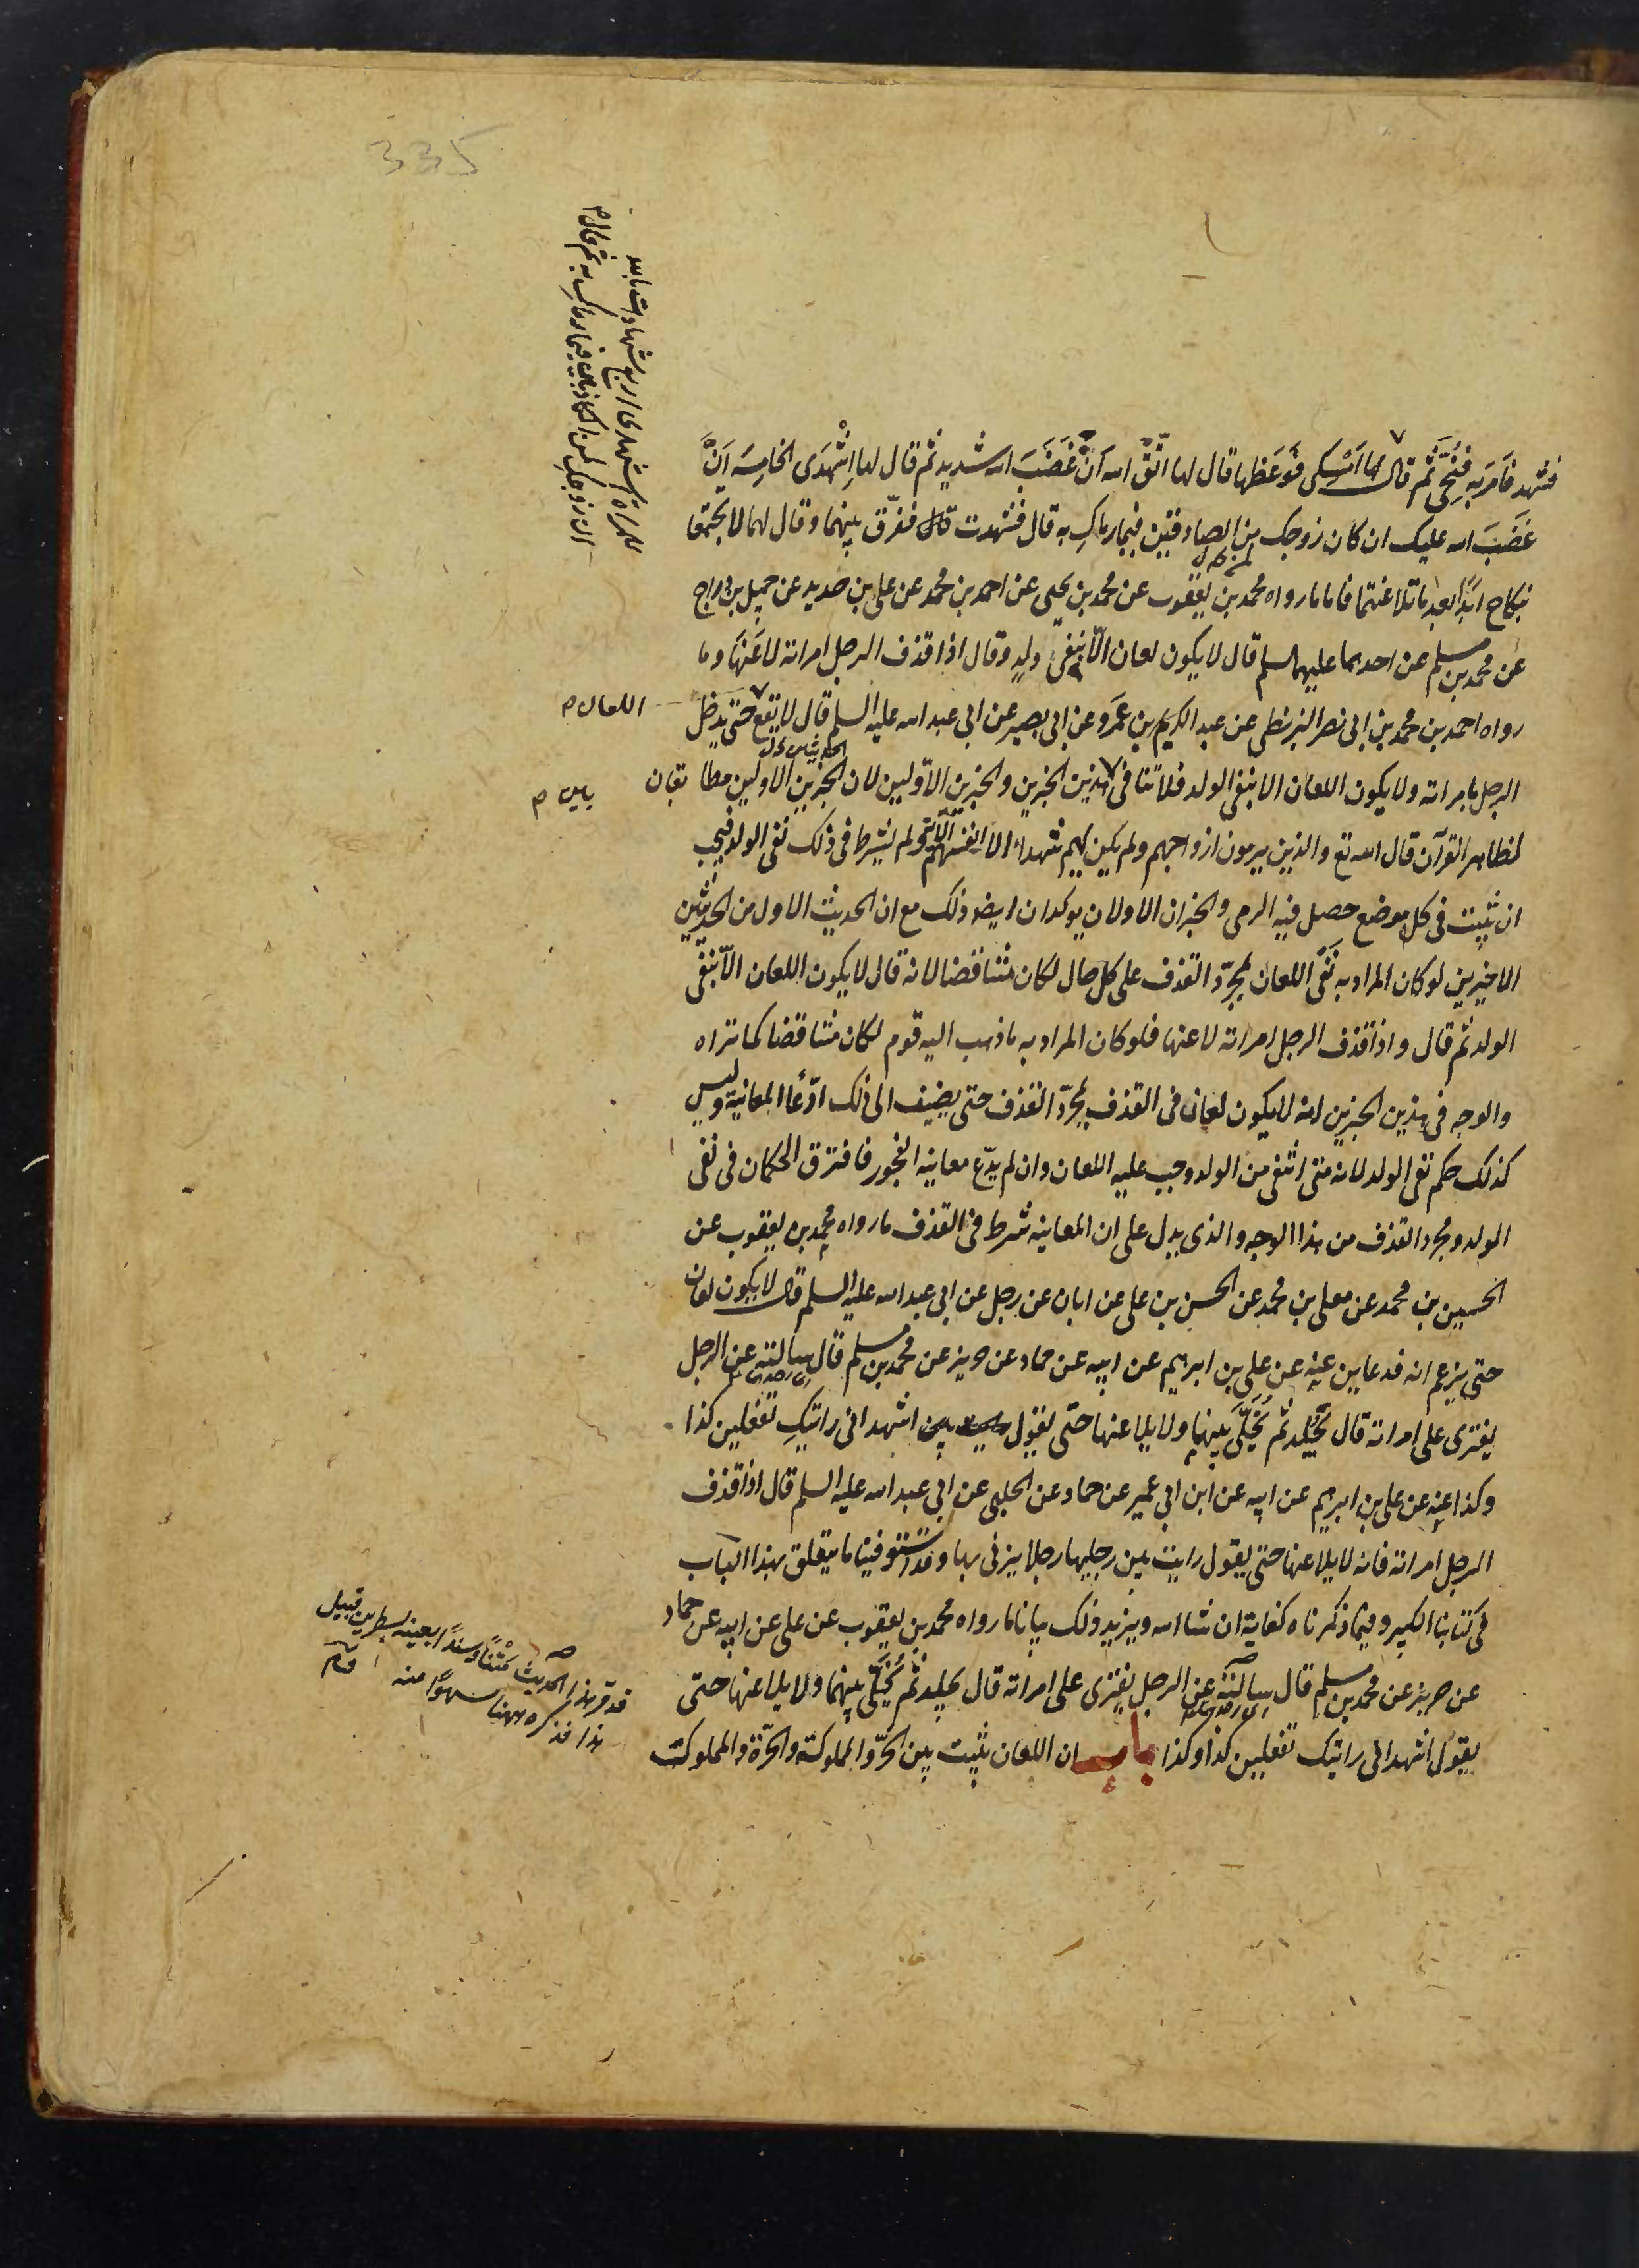 335
للمراة اشهدى اربع شهادات بالله
ان زوجك لمن الكاذبين فيما رماك به ثم قال م
فشهد فامر به فنحّى ثم قال لها امسكى فوعظها قال لها اتّق الله انّ غضب الله شديد ثم قال لها اشهدى الخامسة انّ
غضب الله عليك ان كان زوجك من الصادقين فيما رماكِ به قال فشهدت قال ففرّق بينهما وقال لهما لا تجتمعا
بنكاح ابدًا بعد ما تلاعنتما فاما ما رواه محمد بن يعقوب عن محمد بن يحيى عن احمد بن محمد عن على بن حديد عن جميل بن دراج
عن محمد بن مسلم عن احدهما عليهما السلم قال لا يكون لعان الّا بنفى ولدٍ وقال اذا قذف الرجل امراته لاعَنَها وما
رواه احمد بن محمد بن ابى نصر البزنطى عن عبد الكريم بن عمرو عن ابى بصير عن ابى عبد الله عليه السلم قال لا يقع حتى يدخل
اللعان م
الرجل بامراته ولا يكون اللعان الا بنفى الولد فلا تنافى هذين الخبرين والخبرين الاوّلين لان الخبرين الاولين مطابقان
بين م
لظاهر القرآن قال الله تع والذين يرمون ازواجهم ولم يكن لهم شهداء الا انفسهم الآية ولم يشرط فى ذلك نفى الولد فيجب
ان يثبت فى كل موضع حصل فيه الرمى والخبران الاولان يوكدان ايضا ذلك مع ان الحديث الاول من الحديثين
الاخيرين لو كان المراد به نَفْى اللعان بمجرّد القذف على كل حال لكان متناقضا لانه قال لا يكون اللعان الّا بنفى
الولد ثم قال واذا قذف الرجل امراته لاعنها فلو كان المراد به ما ذهب اليه قوم لكان متناقضا كما تراه
والوجه فى هذين الخبرين انه لا يكون لعان فى القذف بمجرّد القذف حتى يضيف الى ذلك ادّعا المعاينة وليس
كذلك حكم نفى الولد لانه متى انتفى من الولد وجب عليه اللعان وان لم يدّع معاينه الفجور فافترق الحكمان فى نفى
الولد ومجرد القذف من هذا الوجه والذى يدل على ان المعاينه شرط فى القذف ما رواه محمد بن يعقوب عن
الحسين بن محمد عن معلى بن محمد عن الحسن بن على عن ابان عن رجل عن ابى عبد الله عليه السلم قال لا يكون لعان
حتى يزعم انه قد عاين عنه عن على بن ابرهيم عن ابيه عن حماد عن حريز عن محمد بن مسلم قال سالته عن الرجل
يفترى على امراته قال يجلد ثم يُخَلّى بينهما ولا يلاعنها حتى يقول اشهد انى رايتكِ تفعلين كذا
وكذا عنه عن على بن ابرهيم عن ابيه عن ابن ابى عمير عن حماد عن الحلبى عن ابى عبد الله عليه السلم قال اذا قذف
الرجل امراته فانه لا يلاعنها حتى يقول رايت بين رجليها رجلا يزنى بها وقد استوفينا ما يتعلق بهذا الباب
فى كتابنا الكبير وفيما ذكرناه كفاية ان شا الله ويزيد ذلك بيانا ما رواه محمد بن يعقوب عن على عن ابيه عن حماد
عن حريز عن محمد بن مسلم قال سالته عن الرجل يفترى على امراته قال يجلد ثم يُخَلّى بينهما ولا يلاعنها حتى
يقول اشهد انى رايتك تفعلين كذا وكذا باب ان اللعان يثبت بين الحرّ والمملوكة والحرّة والمملوك
قد مرّ هذا الحديث متنًا وسندًا بعينه بسطرين قبيل
هذا فذكره ههنا سهوًا منه